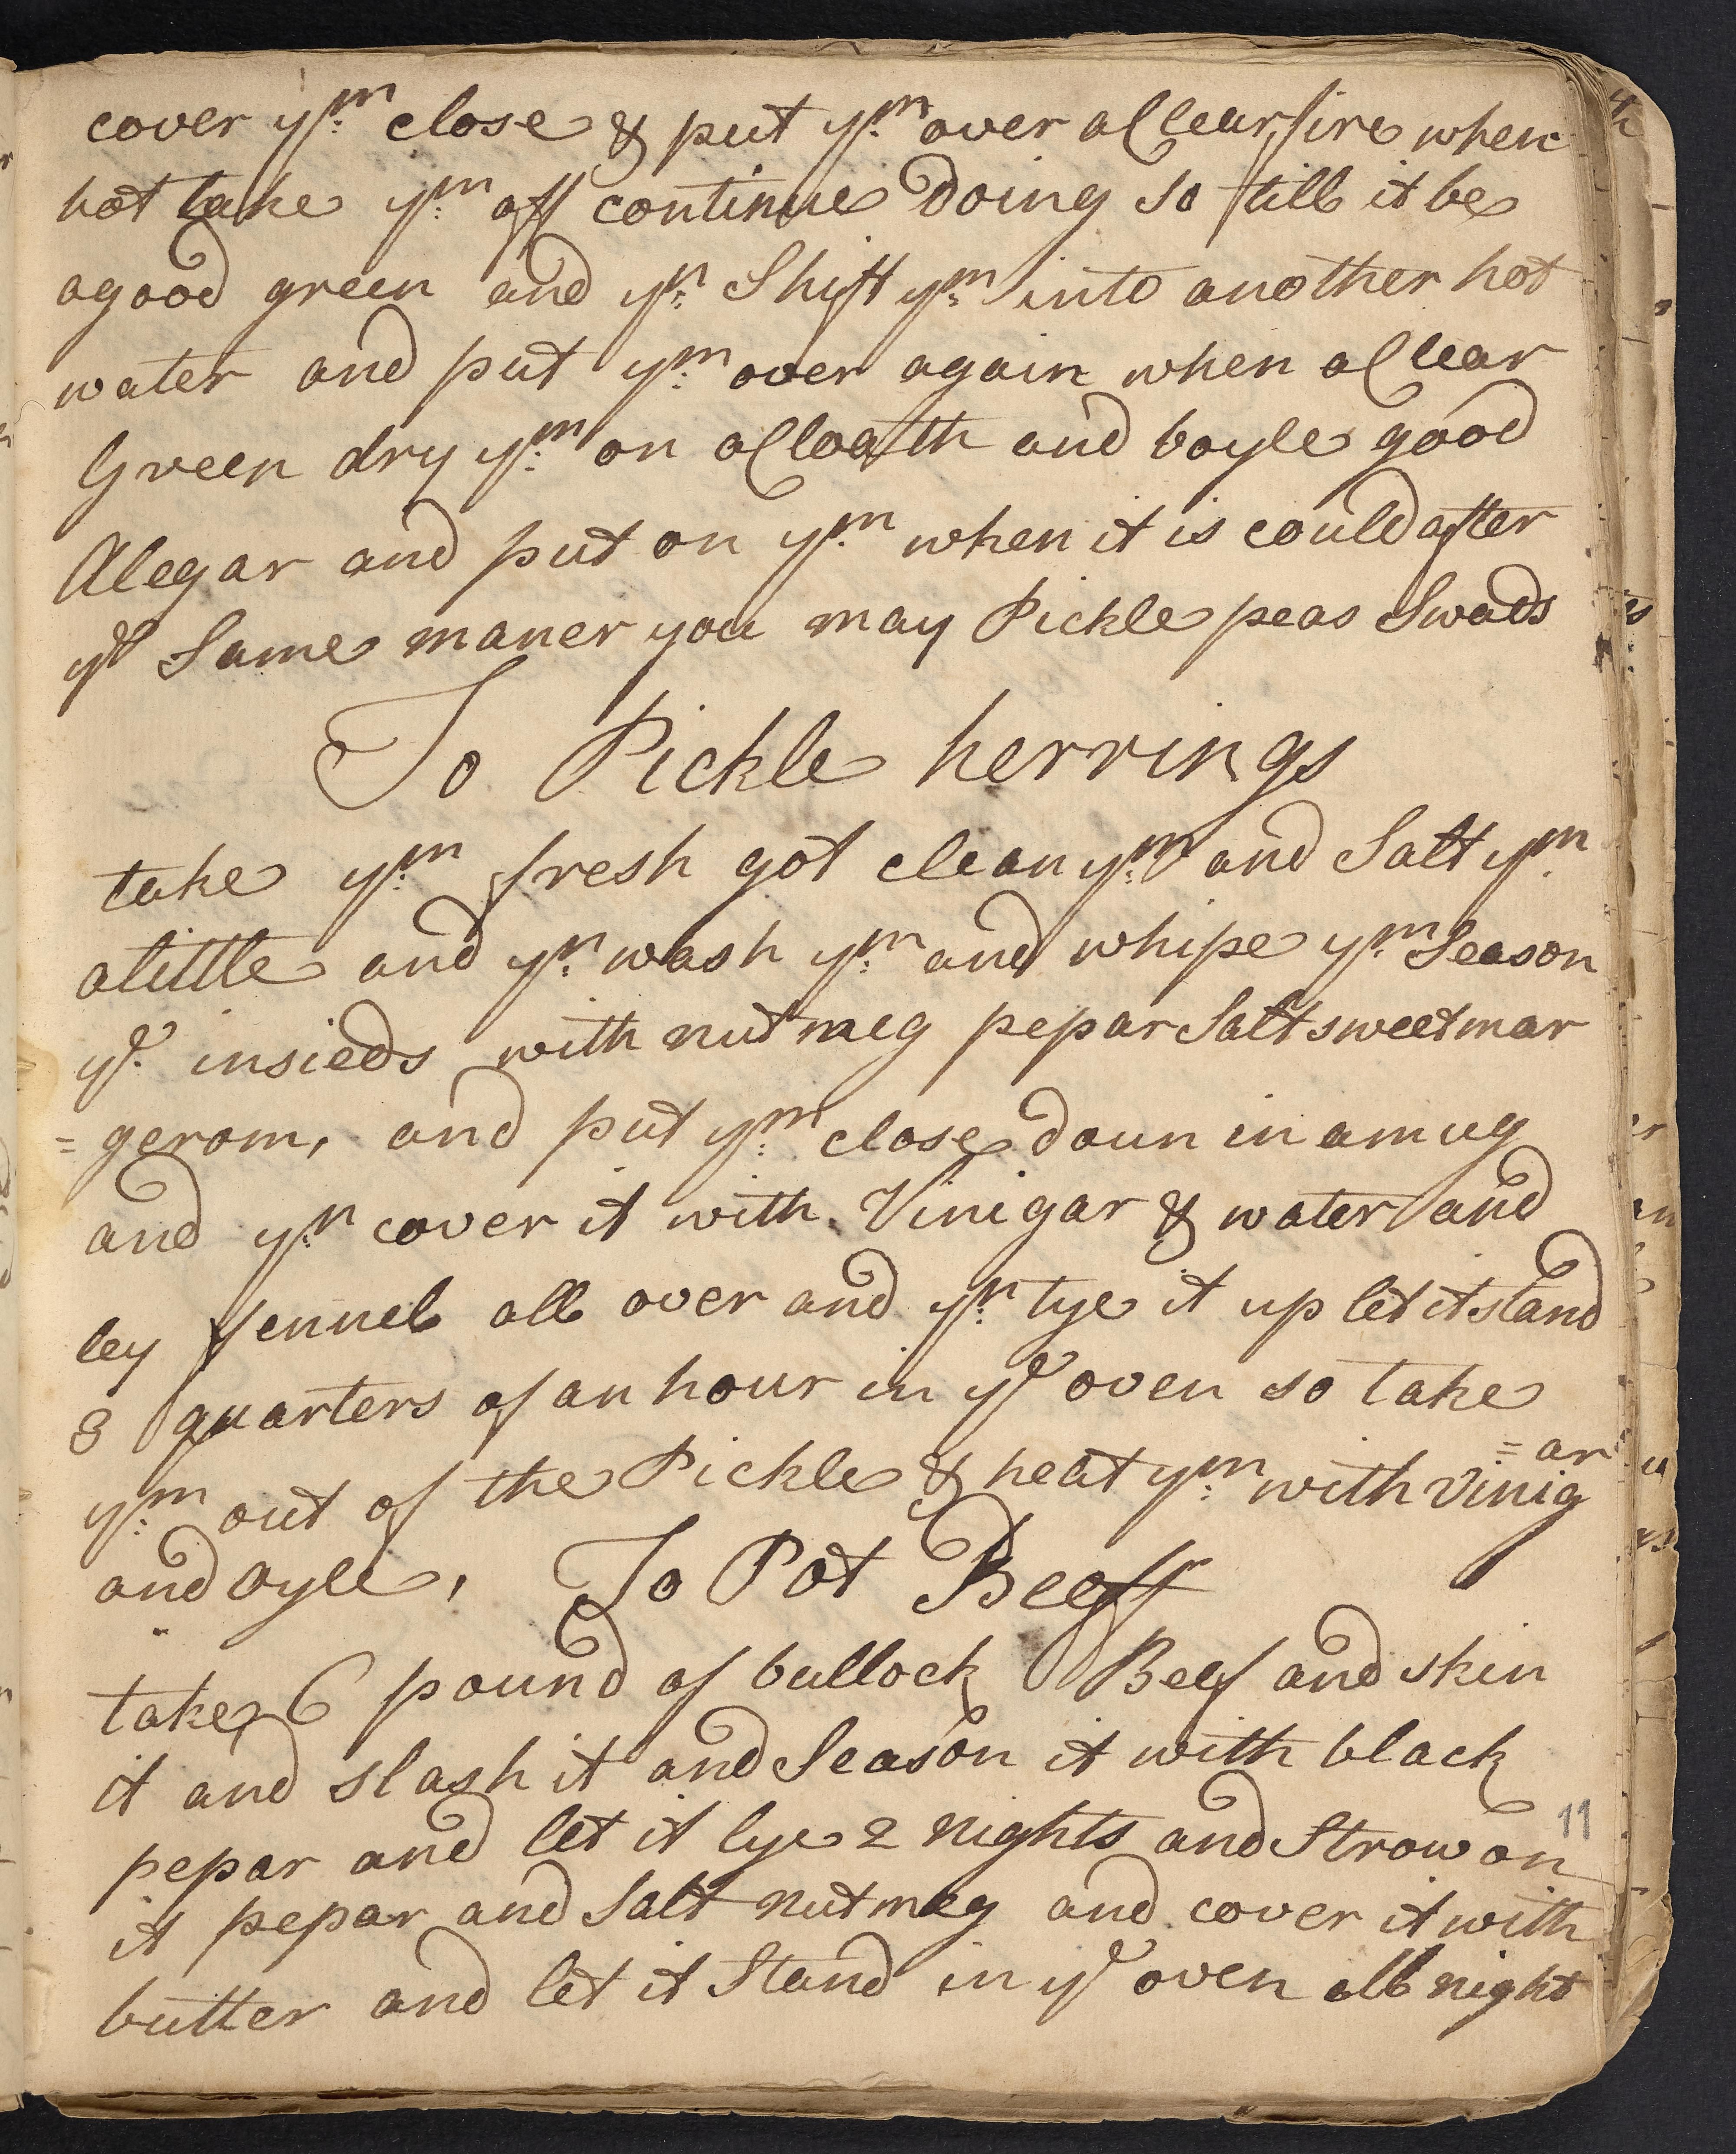 cover y:m close & put y:m over a Clear fire when
hot take y:m off continue Doing so till it be
agood green and y:n Shift y:m into another hot
water and put y:m over again when a Clear
Green dry y:m on a Cloath and boyle good
Alegar and put on y:m when it is could after
ye Same maner you may Pickle peas Swads
To Pickle herrings
take y:m fresh got clean y:m and Salt y:m
alittle and y:n wash y:m and whipe y:m Season
ye: insieds with nutmeg pepar Salt sweet mar
=gerom, and put y:m close doun in amug
and y:n cover it with Vinigar & water and
ley fennel all over and y:n tye it up let it stand
3 quarters of an hour in ye oven so take
y:m out of the Pickle & heat y:m with Vinig
=ar
and oyle, To Pot Beeff
take 6 pound of bullock Beef and skin
it and slash it and Season it with black
pepar and let it lye 2 nights and Strow on
11
it pepar and Salt nutmeg and cover it with
butter and let it Stand in ye oven all night